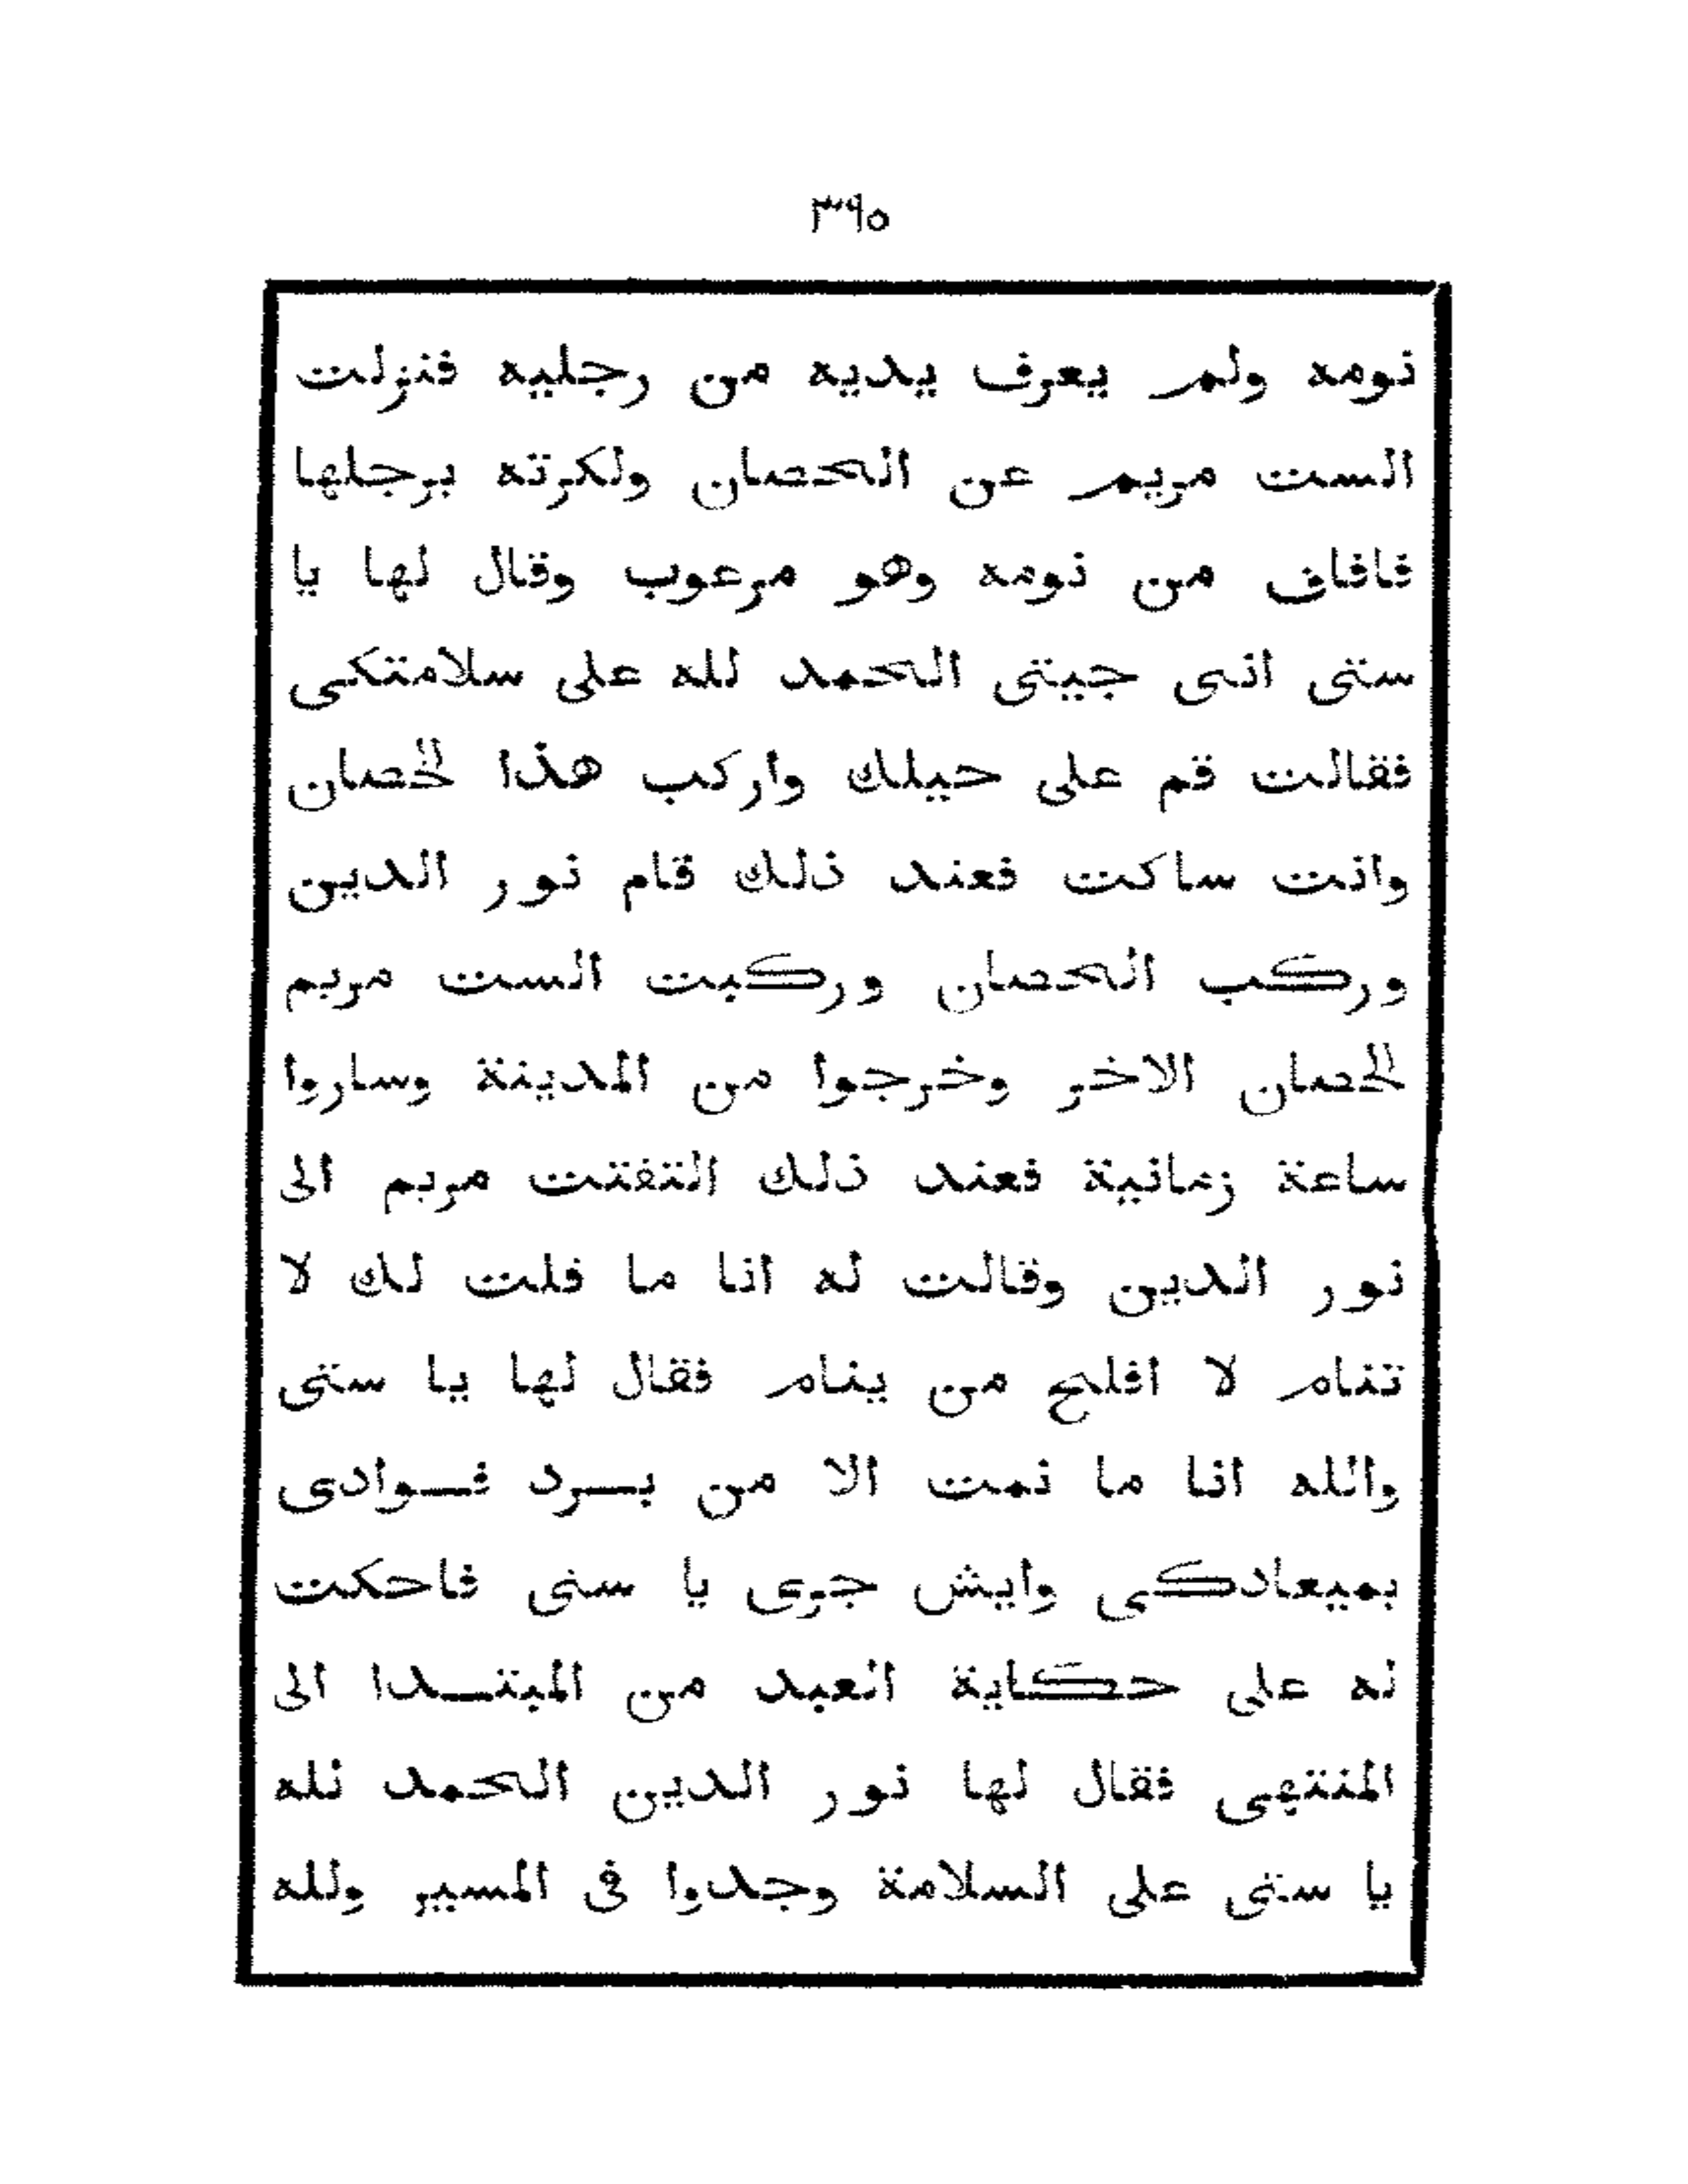 ٣٩٥
نومه ولم يعرف يديه من رجليه فنزلت
الست مريم عن الحصان ولكزته برجلها
فافاق من نومه وهو مرعوب وقال لها يا
ستى انتى جيتى الحمد لله على سلامتكى
فقالت قم على حيلك واركب هذا الحصان
وانت ساكت فعند ذلك قام نور الدين
وركب الحصان وركبت الست مريم
الحصان الاخر وخرجوا من المدينة وساروا
ساعة زمانية فعند ذلك التفتت مريم الى
نور الدين وقالت له انا ما قلت لك لا
تنام لا افلح من ينام فقال لها يا ستى
والله انا ما نمت الا من برد فوادى
بميعادكى وايش جرى يا ستى فاحكت
له على حكاية العبد من المبتدا الى
المنتهى فقال لها نور الدين الحمد لله
يا ستى على السلامة وجدوا فى المسير ولله